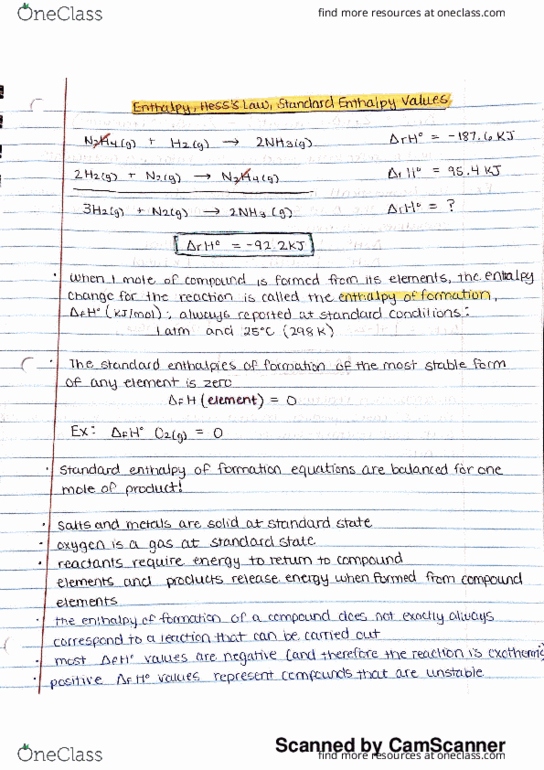 OneClass
find more resources at oneclass.com
Enthalpy, Hess's Law, Standard Enthalpy Values
N₂H₄(g) + H₂(g) → 2NH₃(g) ΔrH° = -187.6 KJ
2H₂(g) + N₂(g) → N₂H₄(g) ΔrH° = 95.4 KJ
3H₂(g) + N₂(g) → 2NH₃(g) ΔrH° = ?
ΔrH° = -92.2KJ
· When 1 mole of compound is formed from its elements, the enthalpy
change for the reaction is called the enthalpy of formation,
ΔfH° (KJ/mol); always reported at standard conditions:
1 atm and 25°C (298K)
· The standard enthalpies of formation of the most stable form
of any element is zero
ΔfH (element) = 0
Ex: ΔfH° O₂(g) = 0
· Standard enthalpy of formation equations are balanced for one
mole of product!
· Salts and metals are solid at standard state
· oxygen is a gas at standard state
· reactants require energy to return to compound
elements and products release energy when formed from compound
elements
· the enthalpy of formation of a compound does not exactly always
correspond to a reaction that can be carried out
· most ΔfH° values are negative (and therefore the reaction is exothermic
· positive ΔfH° values represent compounds that are unstable
Scanned by CamScanner
OneClass
find more resources at oneclass.com